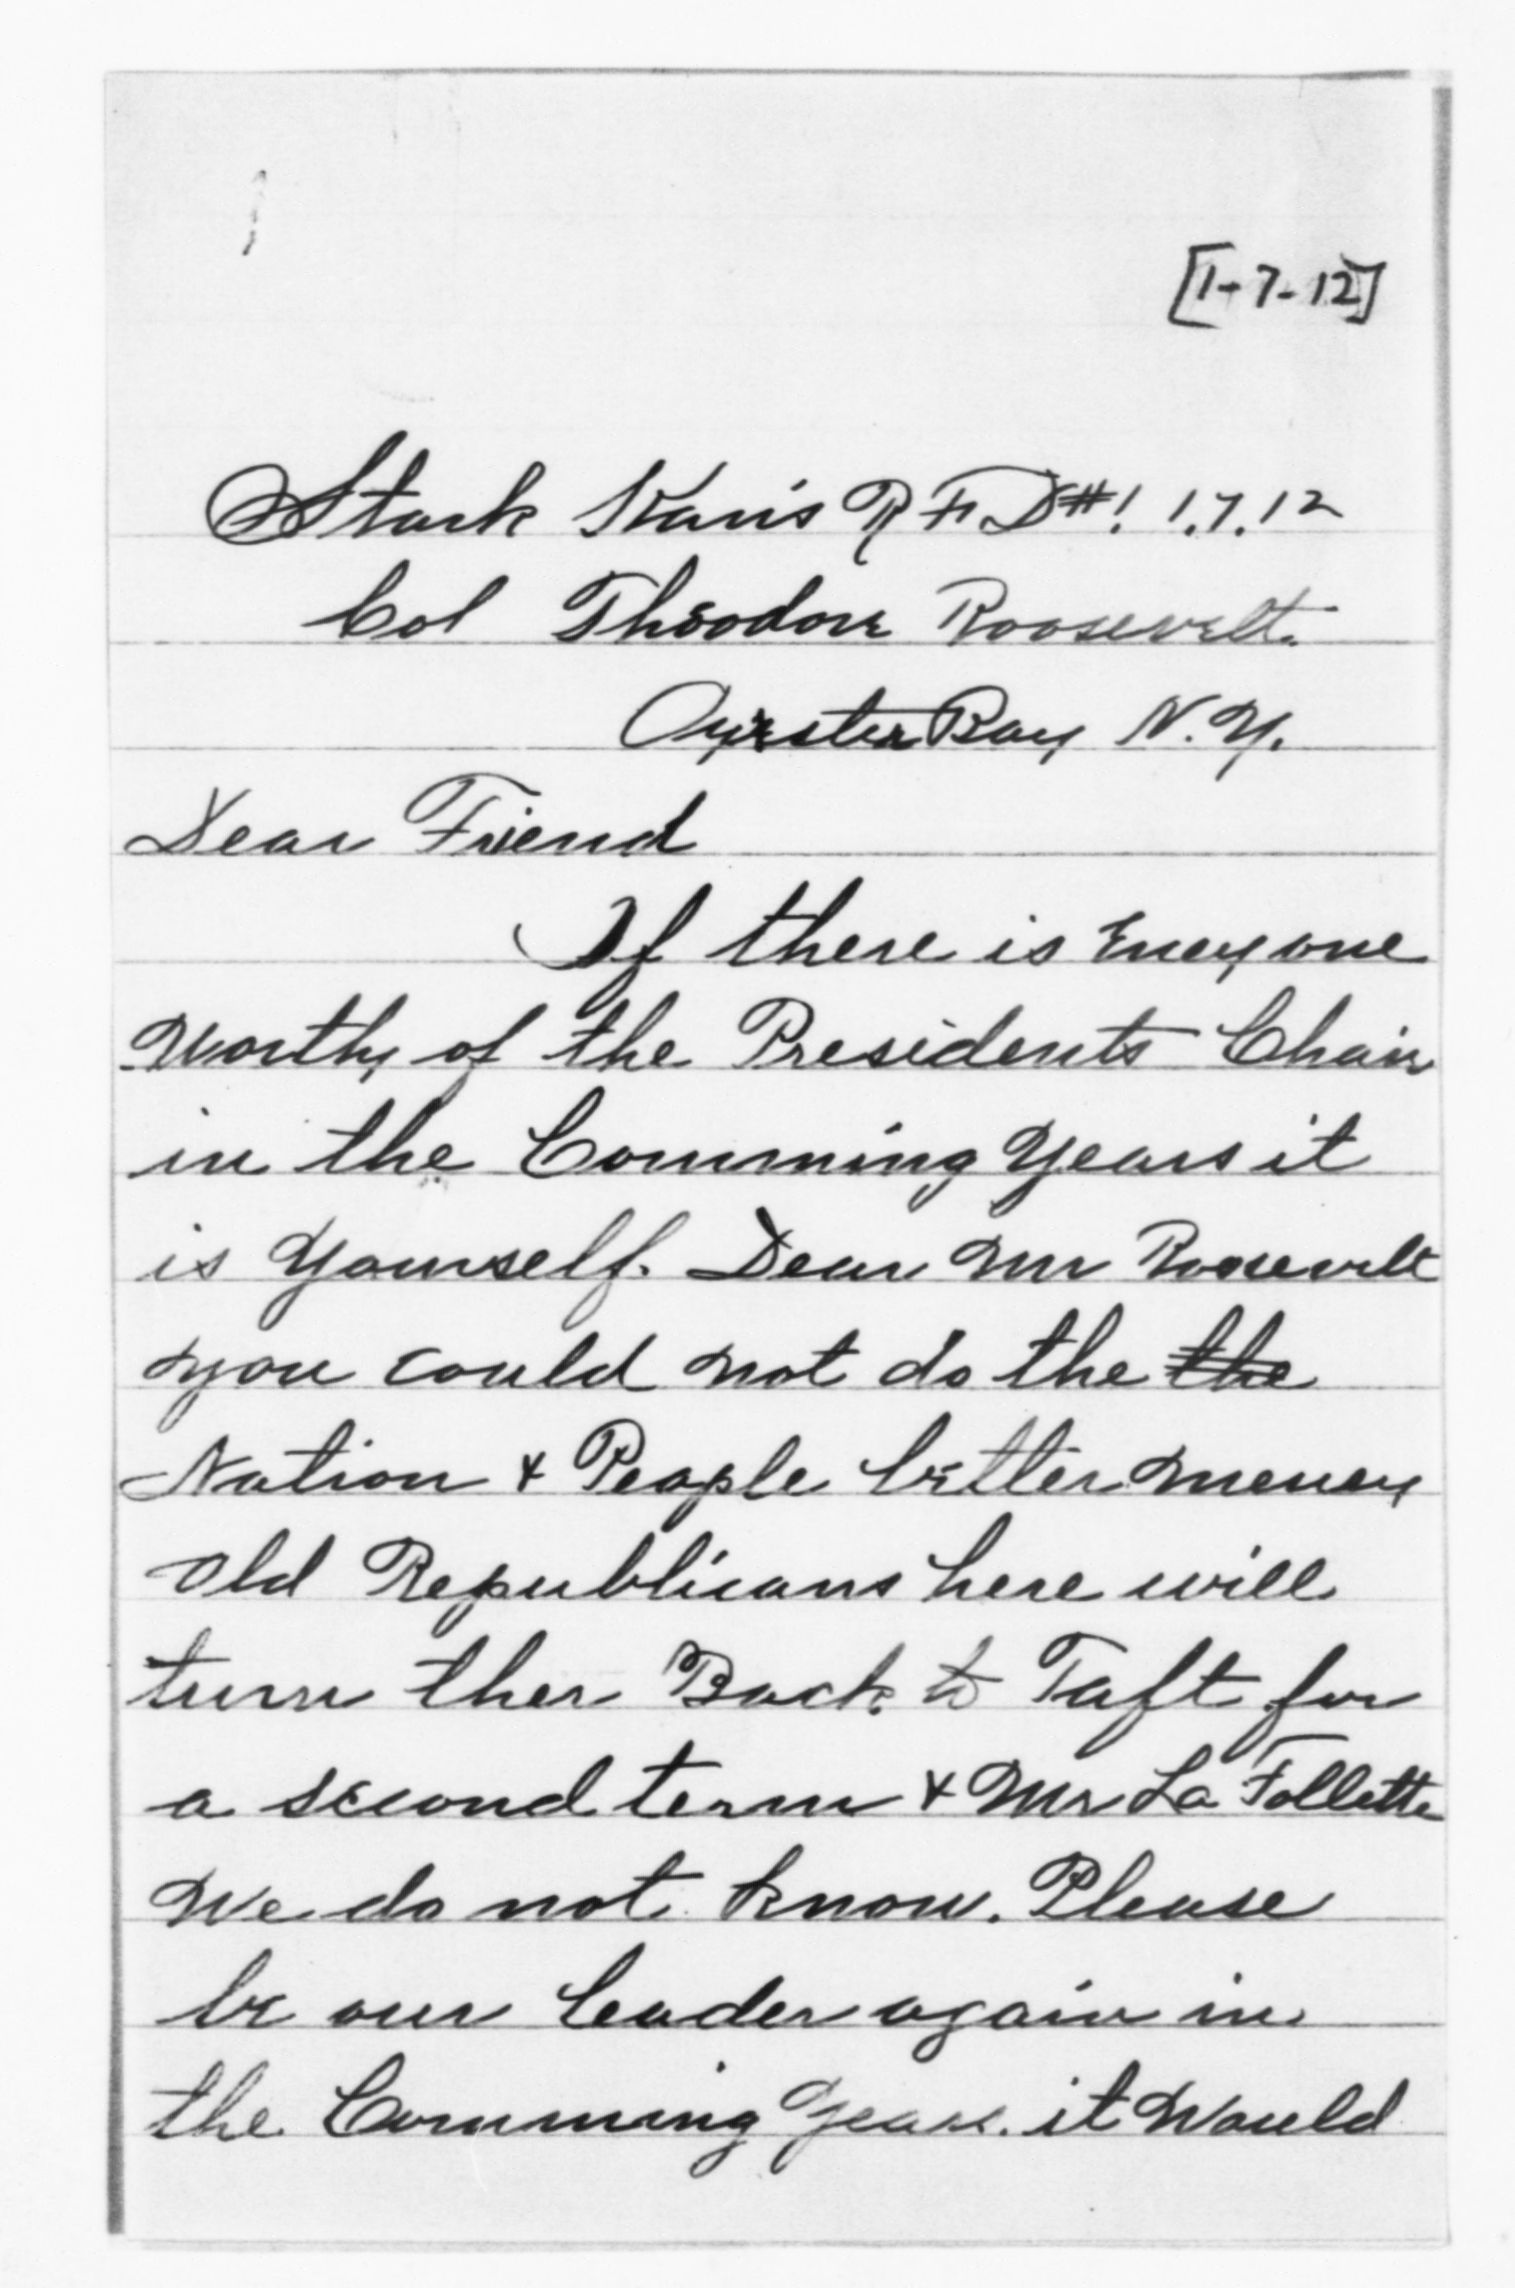 [1-7-12]
Stark Kan's R F D #1 1.7.12
Col Theodore Roosevelt.
Oyester Bay N.Y.
Dear Friend
If there is Eneyone
Worthy of the Presidents Chair
in the Comming Years it
is Yourself. Dear Mr Roosevelt
you could not do the ~~the~~
Nation & People better meney
old Republicans here will
turn ther Back to Taft for
a second term & Mr La Follette
We do not know. Please
be our leader again in
the Comming Years. it Would